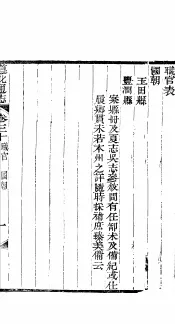 職官表
國朝
玉田縣
豐潤縣
案縣冊及夏志吳志參攷間有任卸未及備紀或仕
履鄉貫未若本州之詳隨時採補庶臻美備云
遵化通志
卷三十
職官
國朝
一